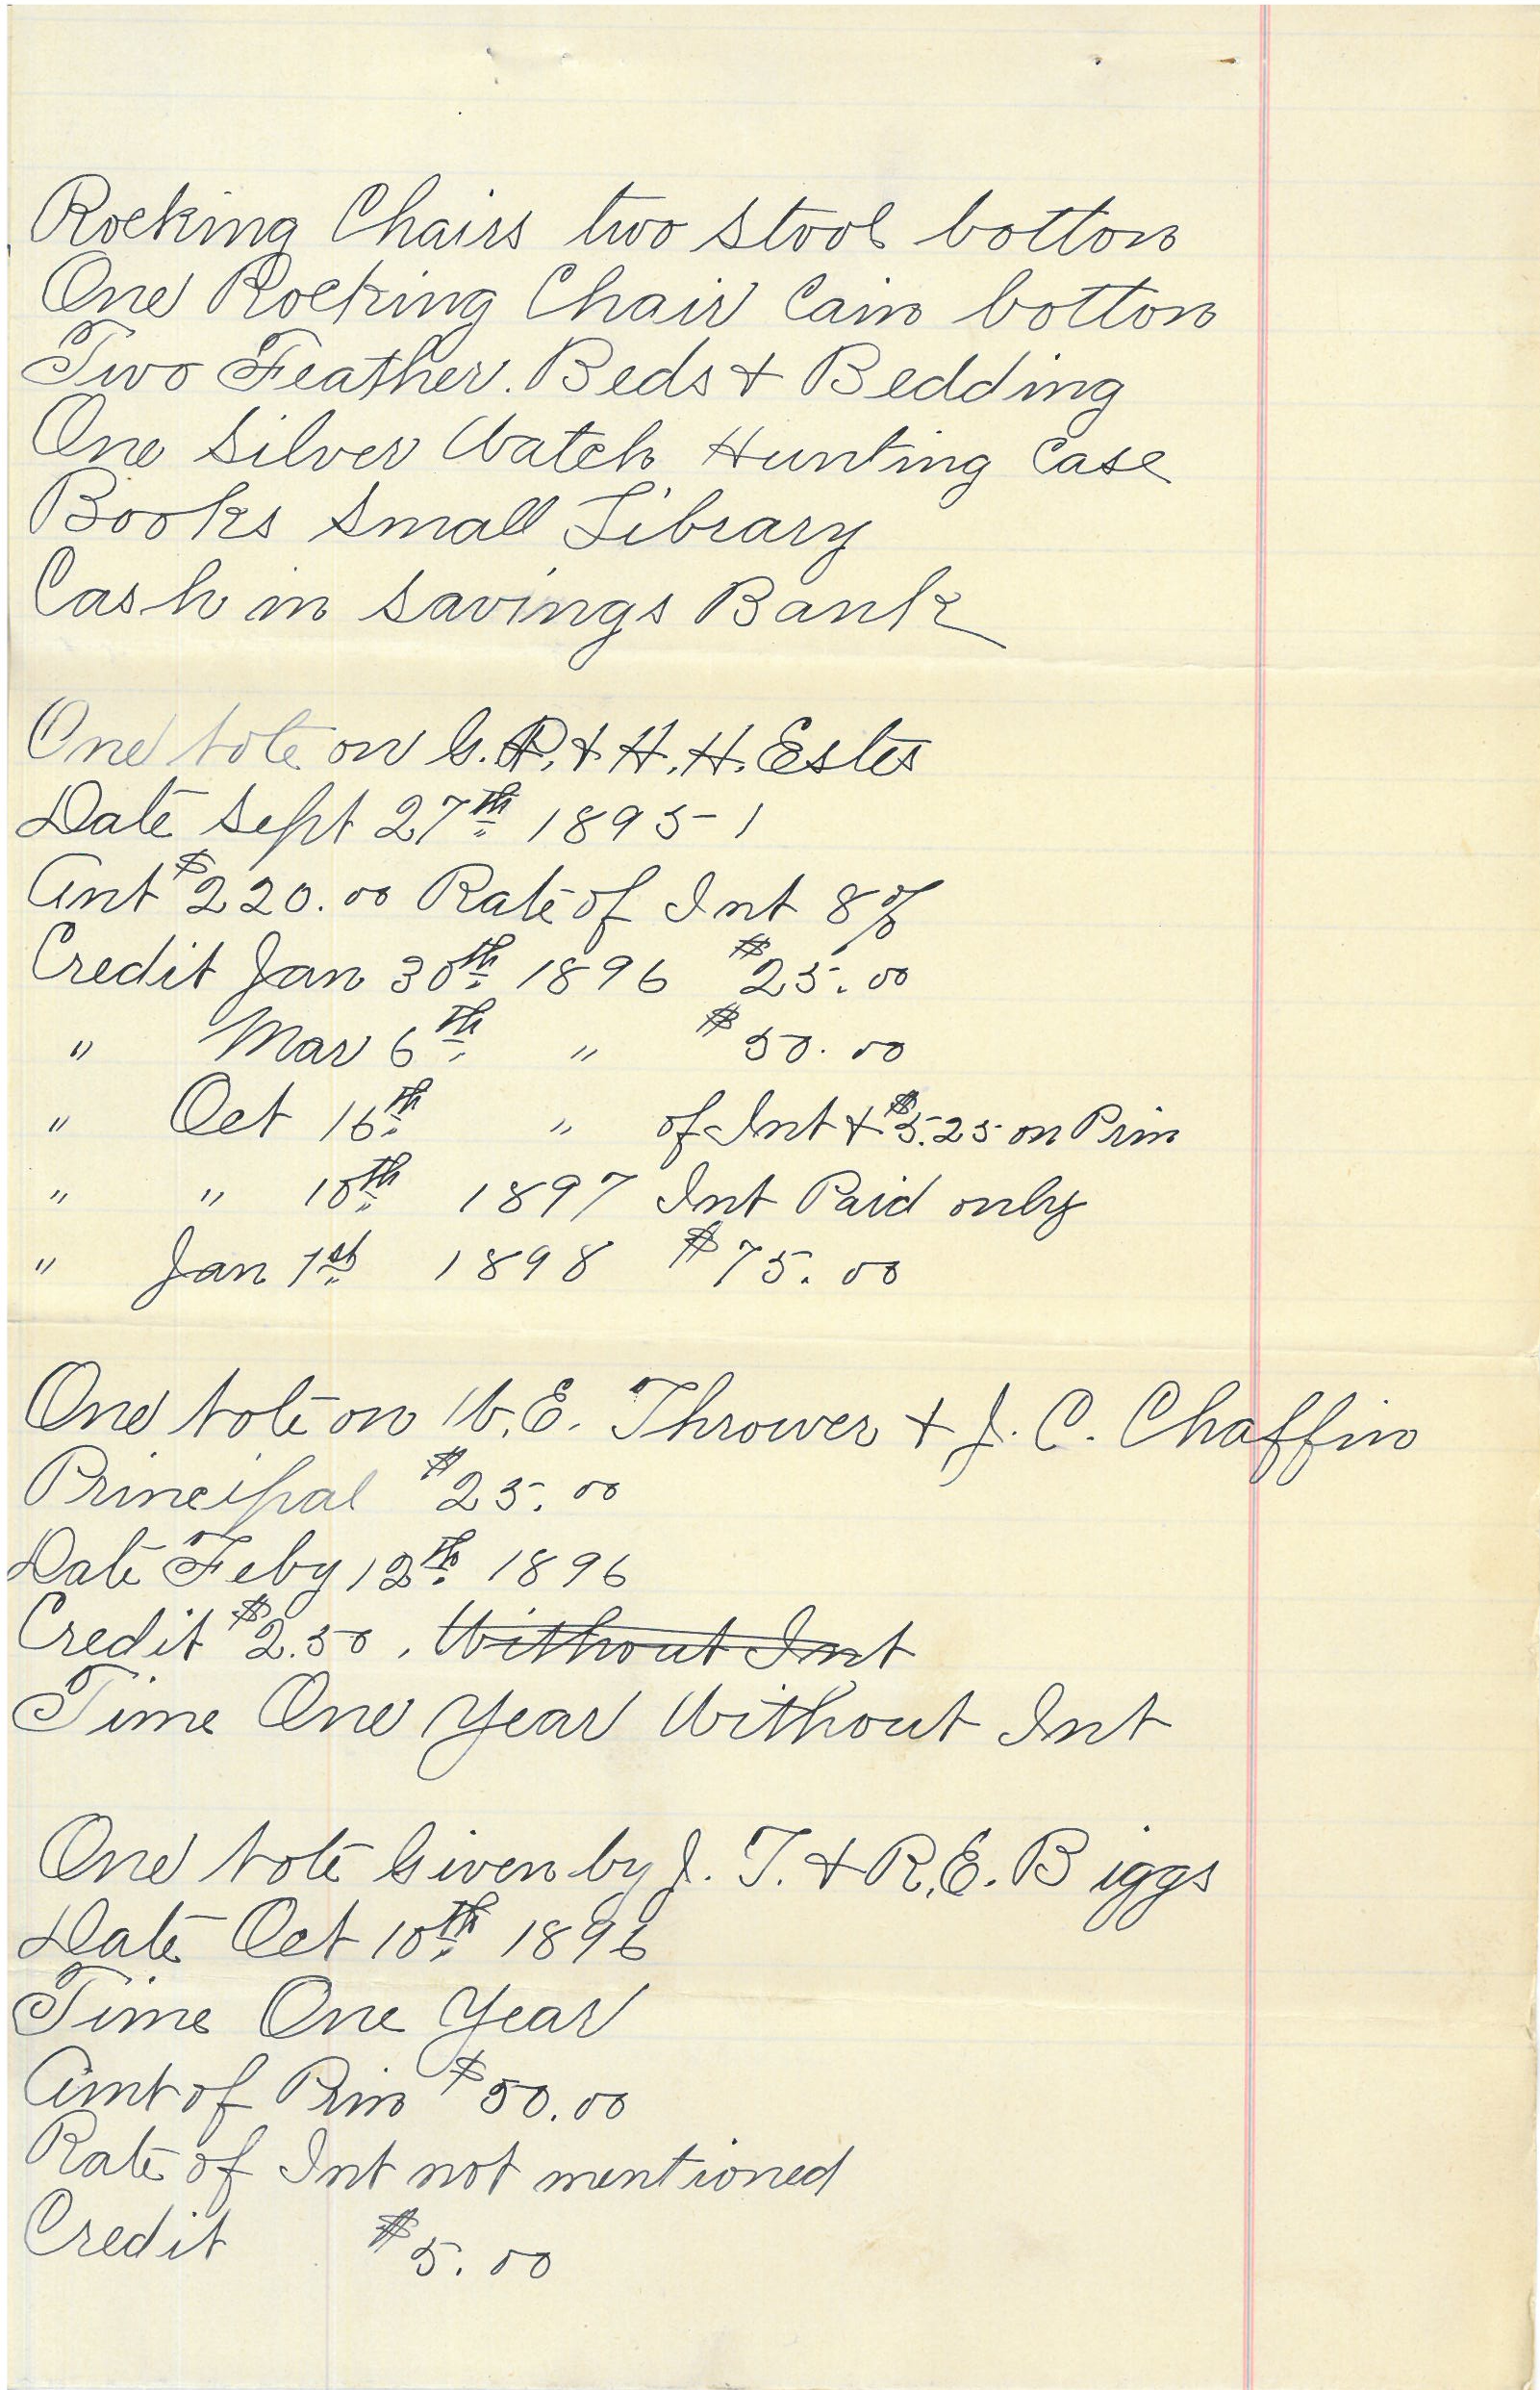 Rocking Chairs two Stool botton
One Rocking Chair Cain botton
Two Feather Beds + Bedding
One Silver Watch Hunting Case
Books Small Library
Cash in Savings Bank
One Note on G. R. + H. H. Estes
Date Sept 27th 1895
Amt $220.00 Rate of Int 8%
Credit Jan 30th 1896 $25.00
" Mar 6th " $50.00
" Oct 16th " of Int + $5.25 on Prin
" " 10th 1897 Int Paid only
" Jan 1st 1898 $75.00
One Note on W. E. Thrower + J. C. Chaffin
Principal $25.00
Date Feby 12th 1896
Credit $2.50. Without Int
Time One Year Without Int
One Note Given by J. T. + R. E. Biggs
Date Oct 10th 1896
Time One Year
Amt of Prin $50.00
Rate of Int not mentioned
Credit $5.00